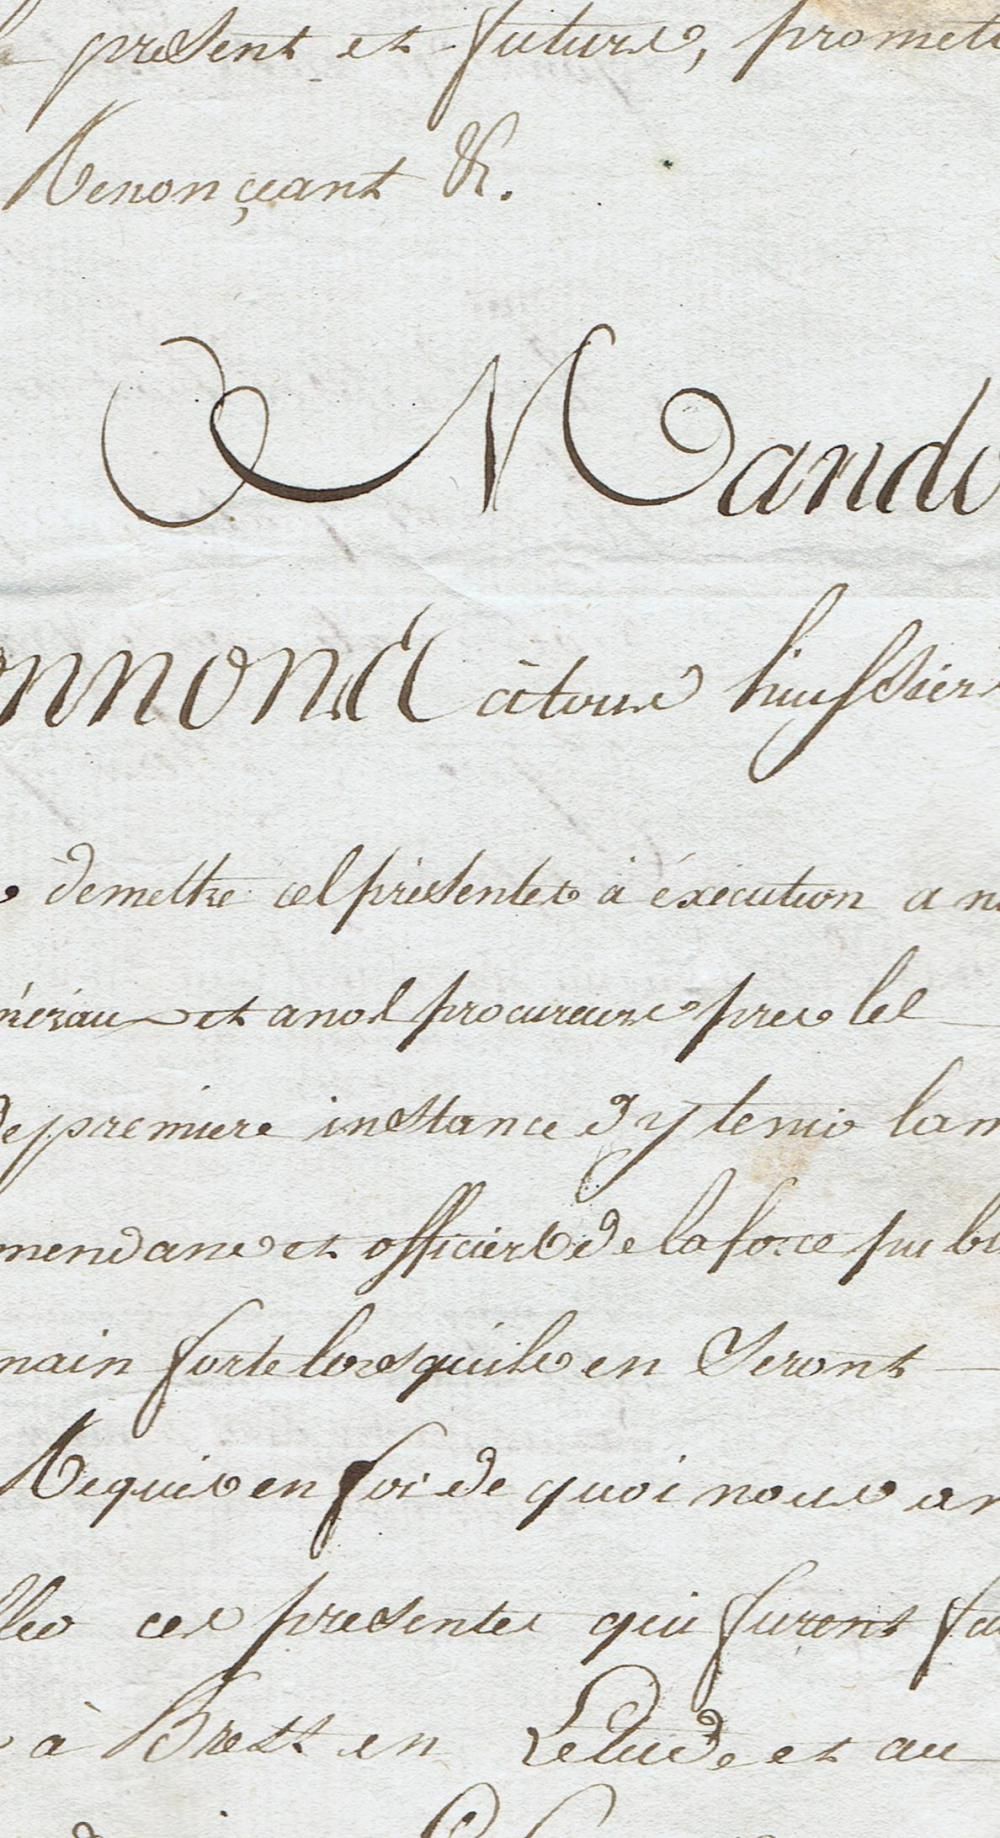 present et future, promett
Renonçeant &.
Mando
onnons à tous huissiers
demettre ces présentes à éxécution a n
néraux et anos procureurs pres les
depremiere instance dy tenir lam
mendans et officiers de laforce publi
main forte lorsquils en Seront
Requis en foi de quoi nous av
lles ces presentes qui furent fai
à Brest en Letude et au